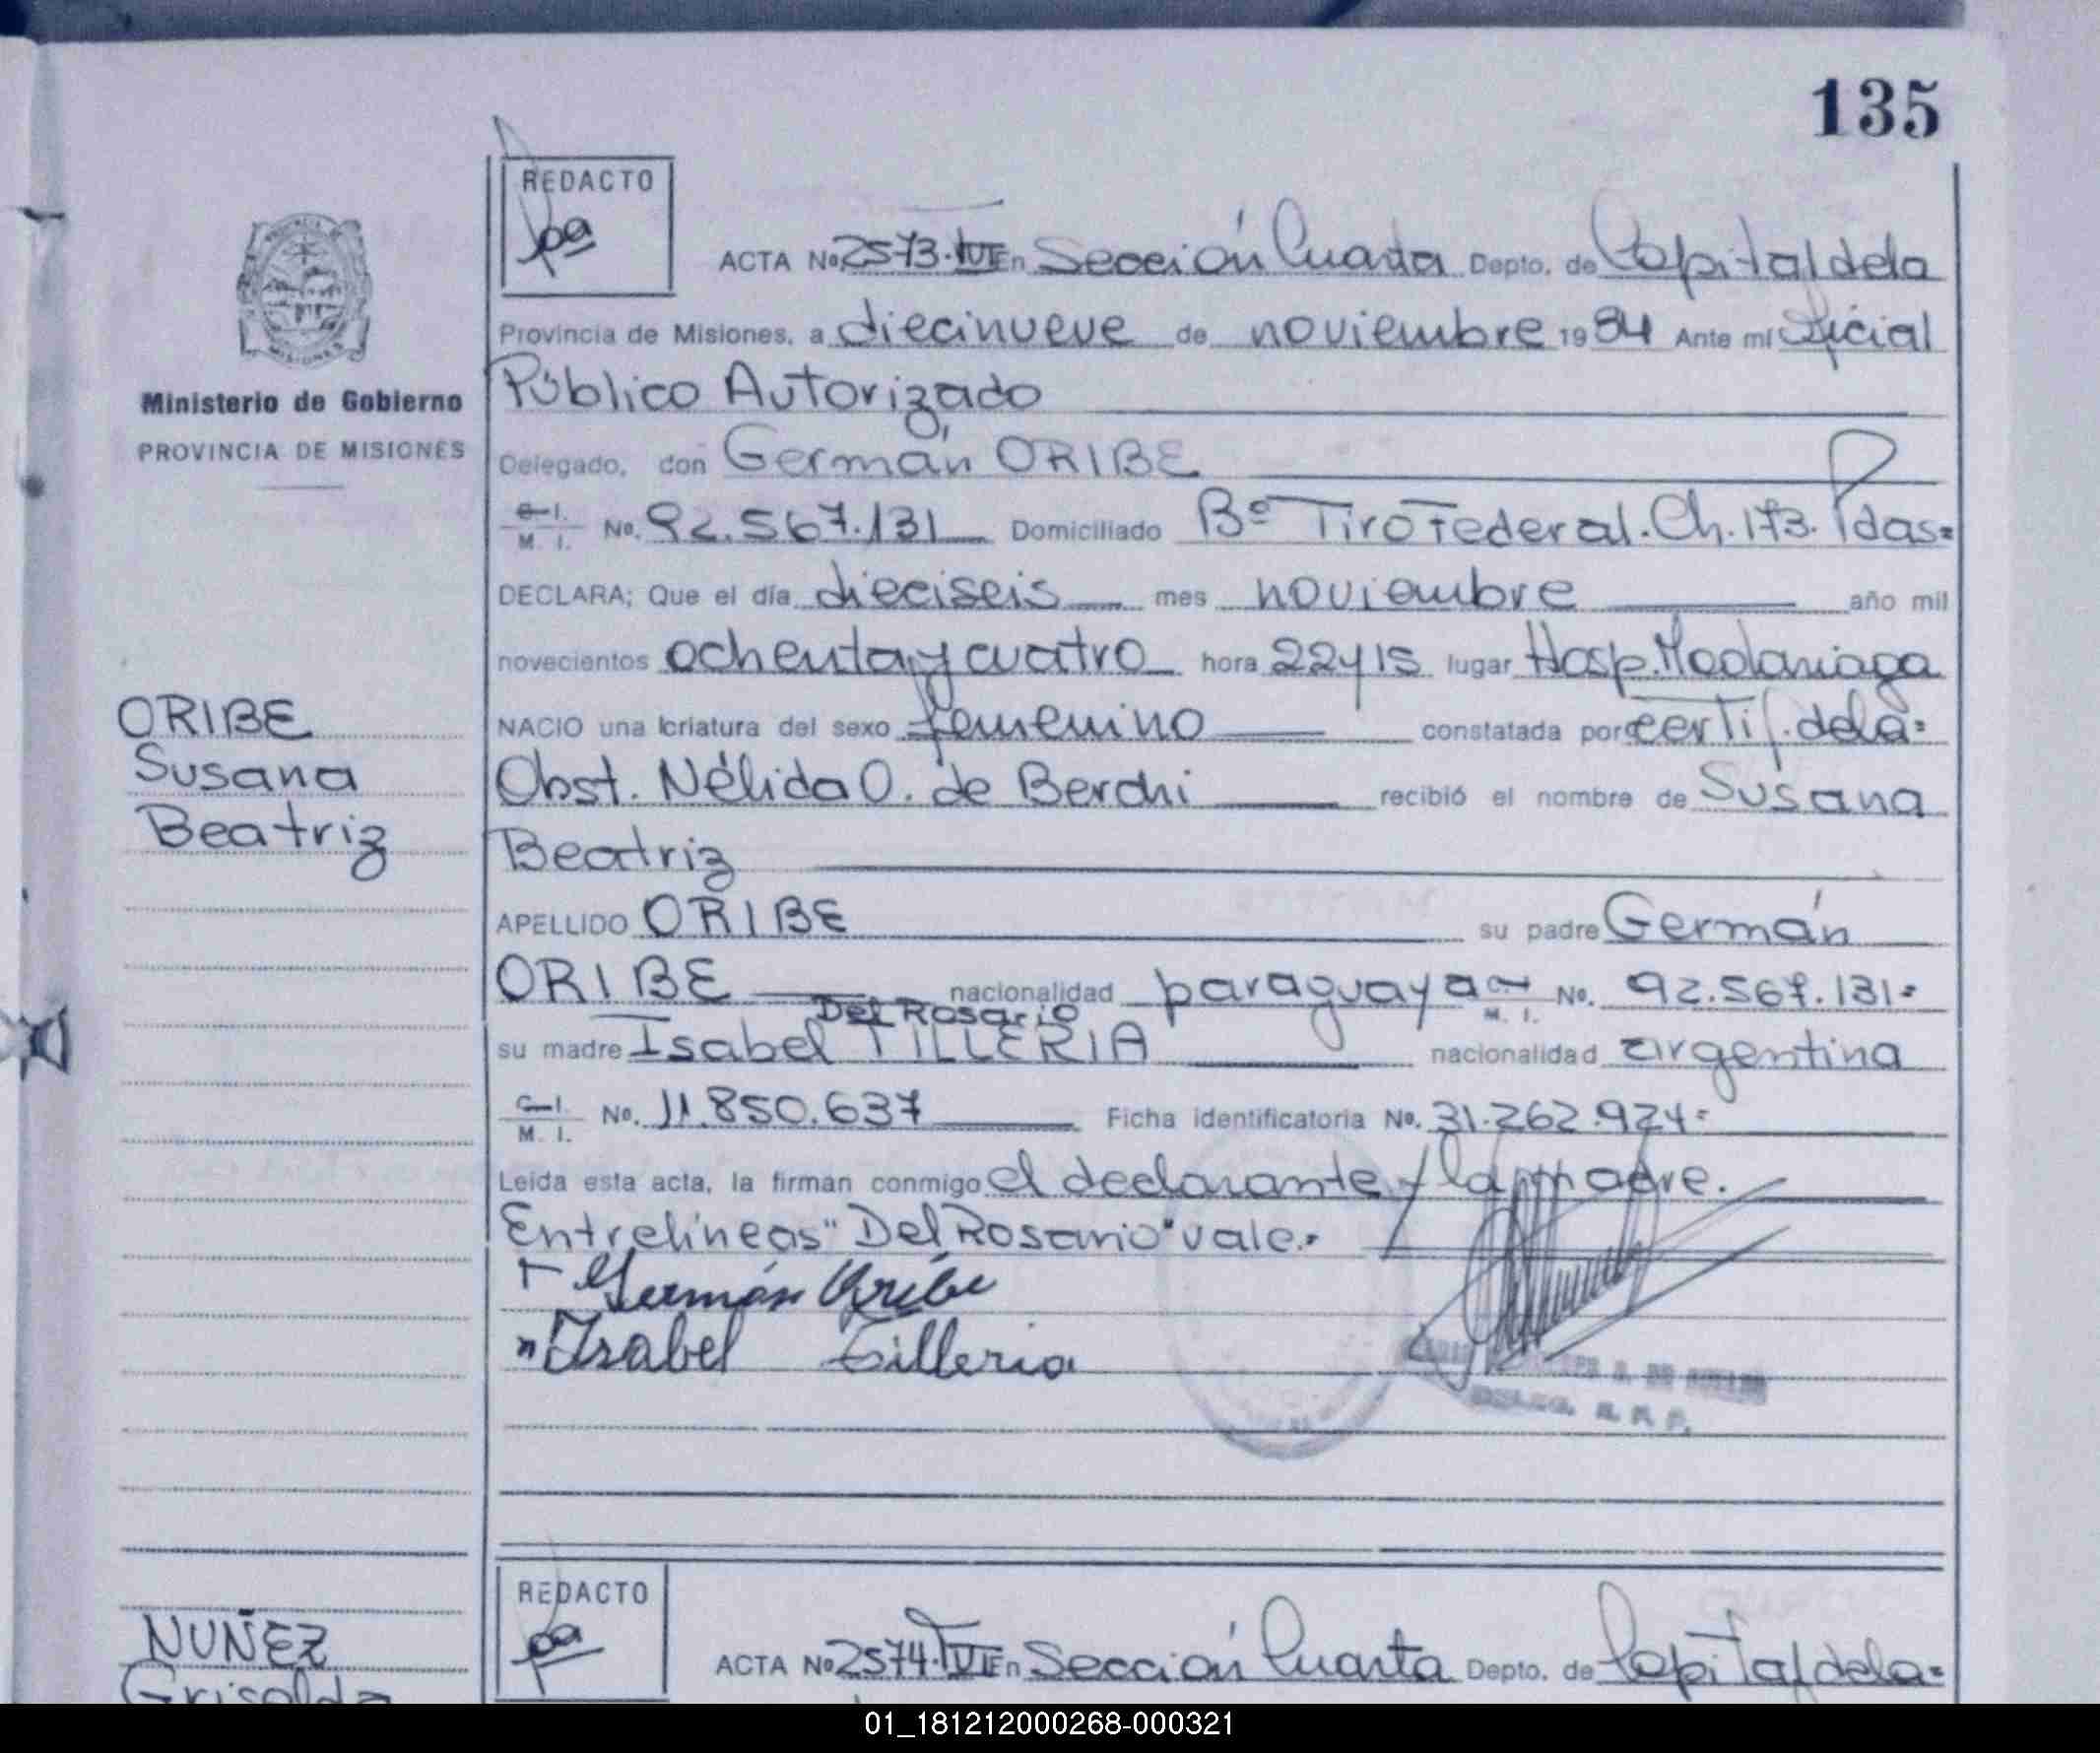 135
REDACTO
ACTA No 2573.TVI En Sección Cuarta Depto. de Capital de la
Provincia de Misiones, a diecinueve de noviembre 1984 Ante mí Oficial
Público Autorizado
Ministerio de Gobierno
PROVINCIA DE MISIONES
Delegado, don Germán ORIBE
C.I. M. I. No. 92.567.131 Domiciliado Bº Tiro Federal. Ch. 173. Pdas=
DECLARA; Que el día dieciseis mes noviembre año mil
novecientos ochenta y cuatro hora 22 y 15 lugar Hosp. Madariaga
ORIBE
Susana
Beatriz
NACIO una criatura del sexo femenino constatada por certif. de la=
Obst. Nélida O. de Berchi recibió el nombre de Susana
Beatriz
APELLIDO ORIBE su padre Germán
ORIBE nacionalidad paraguaya C.I. M. I. No. 92.567.131=
Del Rosario
su madre Isabel TILLERIA nacionalidad argentina
C.I. M. I. No. 11.850.637 Ficha identificatoria No. 31.262.924=
Leída esta acta, la firman conmigo el declarante y la madre.
Entrelíneas "Del Rosario" vale.=
Germán Oribe
Isabel Tilleria
REDACTO
ACTA No 2574.TVI En Sección Cuarta Depto. de Capital de la=
NUÑEZ
Griselda
01_181212000268-000321